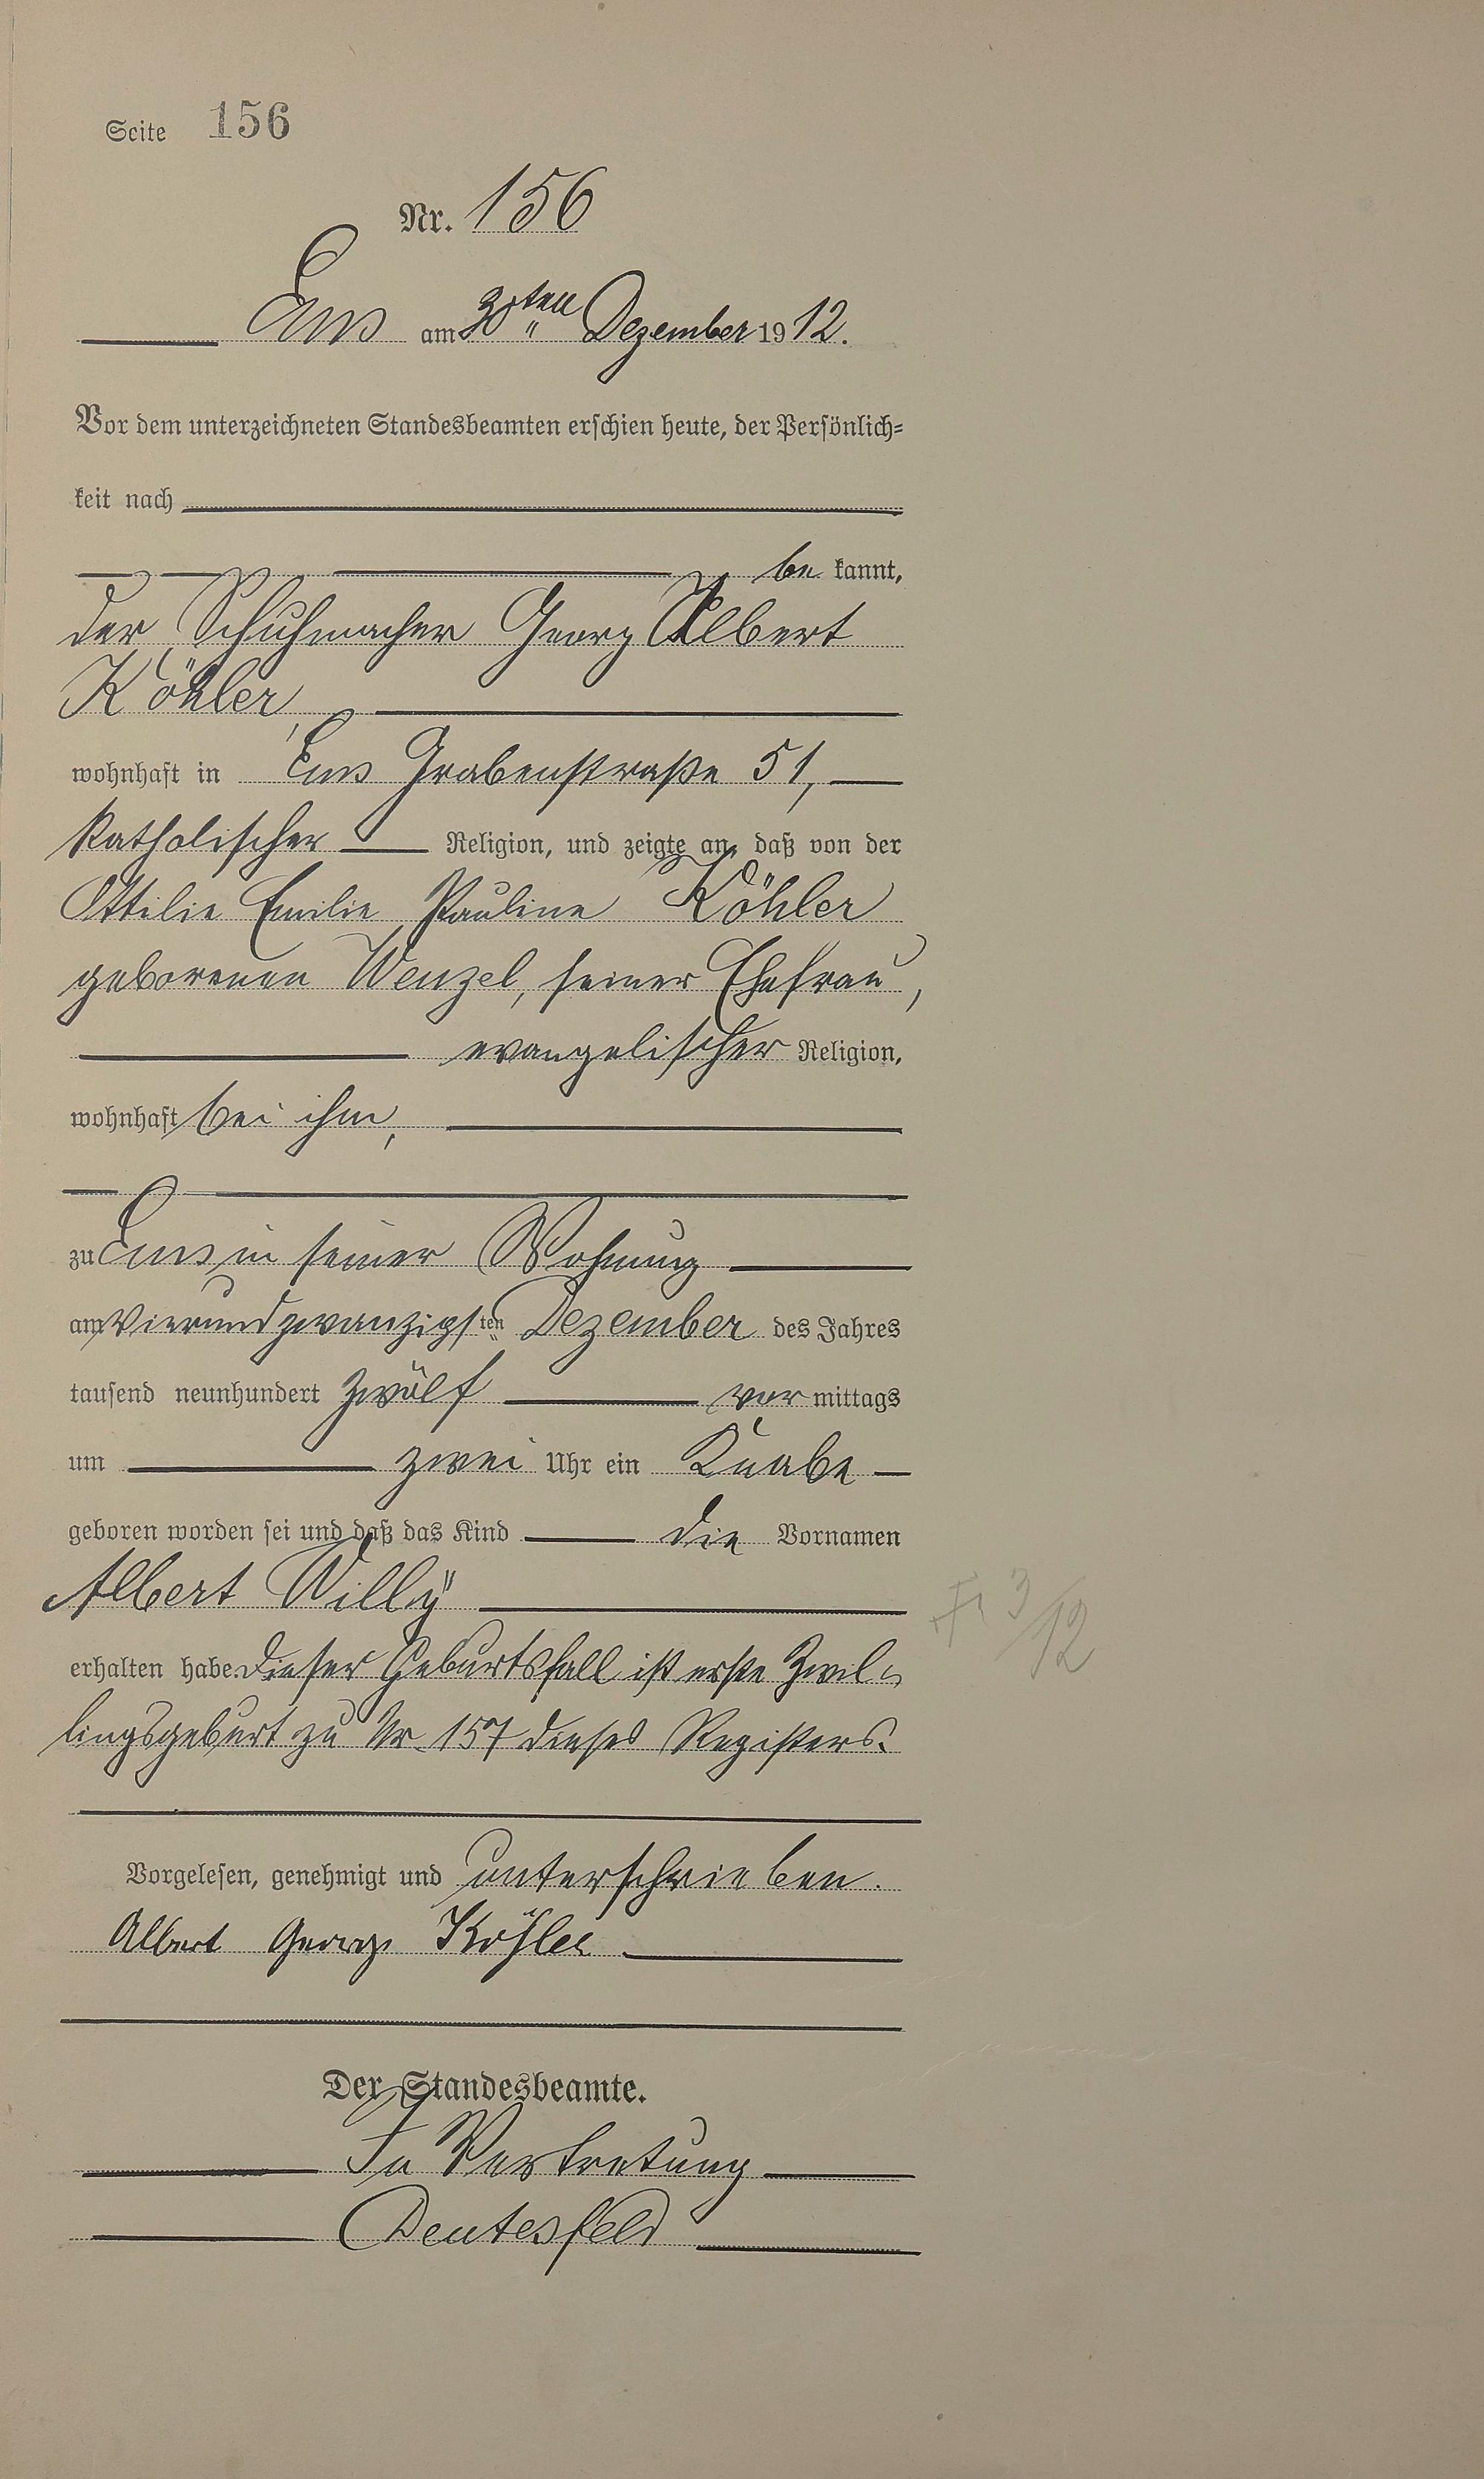 Seite 156
Nr. 156
Ems am 30ten Dezember 1912.
Vor dem unterzeichneten Standesbeamten erschien heute, der Persönlich=
keit nach
be kannt,
der Schuhmacher Georg Albert
Köhler,
wohnhaft in Ems Grabenstraße 51,
katholischer Religion, und zeigte an, daß von der
Ottilie Emilie Pauline Köhler
geborenen Wenzel, seiner Ehefrau,
evangelischer Religion,
wohnhaft bei ihm,
zu Ems in seiner Wohnung
am vierundzwanzigsten Dezember des Jahres
tausend neunhundert zwölf vor mittags
um zwei Uhr ein Knabe
geboren worden sei und daß das Kind die Vornamen
Albert Willy
erhalten habe. Dieser Geburtsfall ist erste Zwil=
lingsgeburt zu Nr. 157 dieses Registers.
Vorgelesen, genehmigt und unterschrieben.
Albert Georg Köhler
Der Standesbeamte.
In Vertretung
Deutesfeld